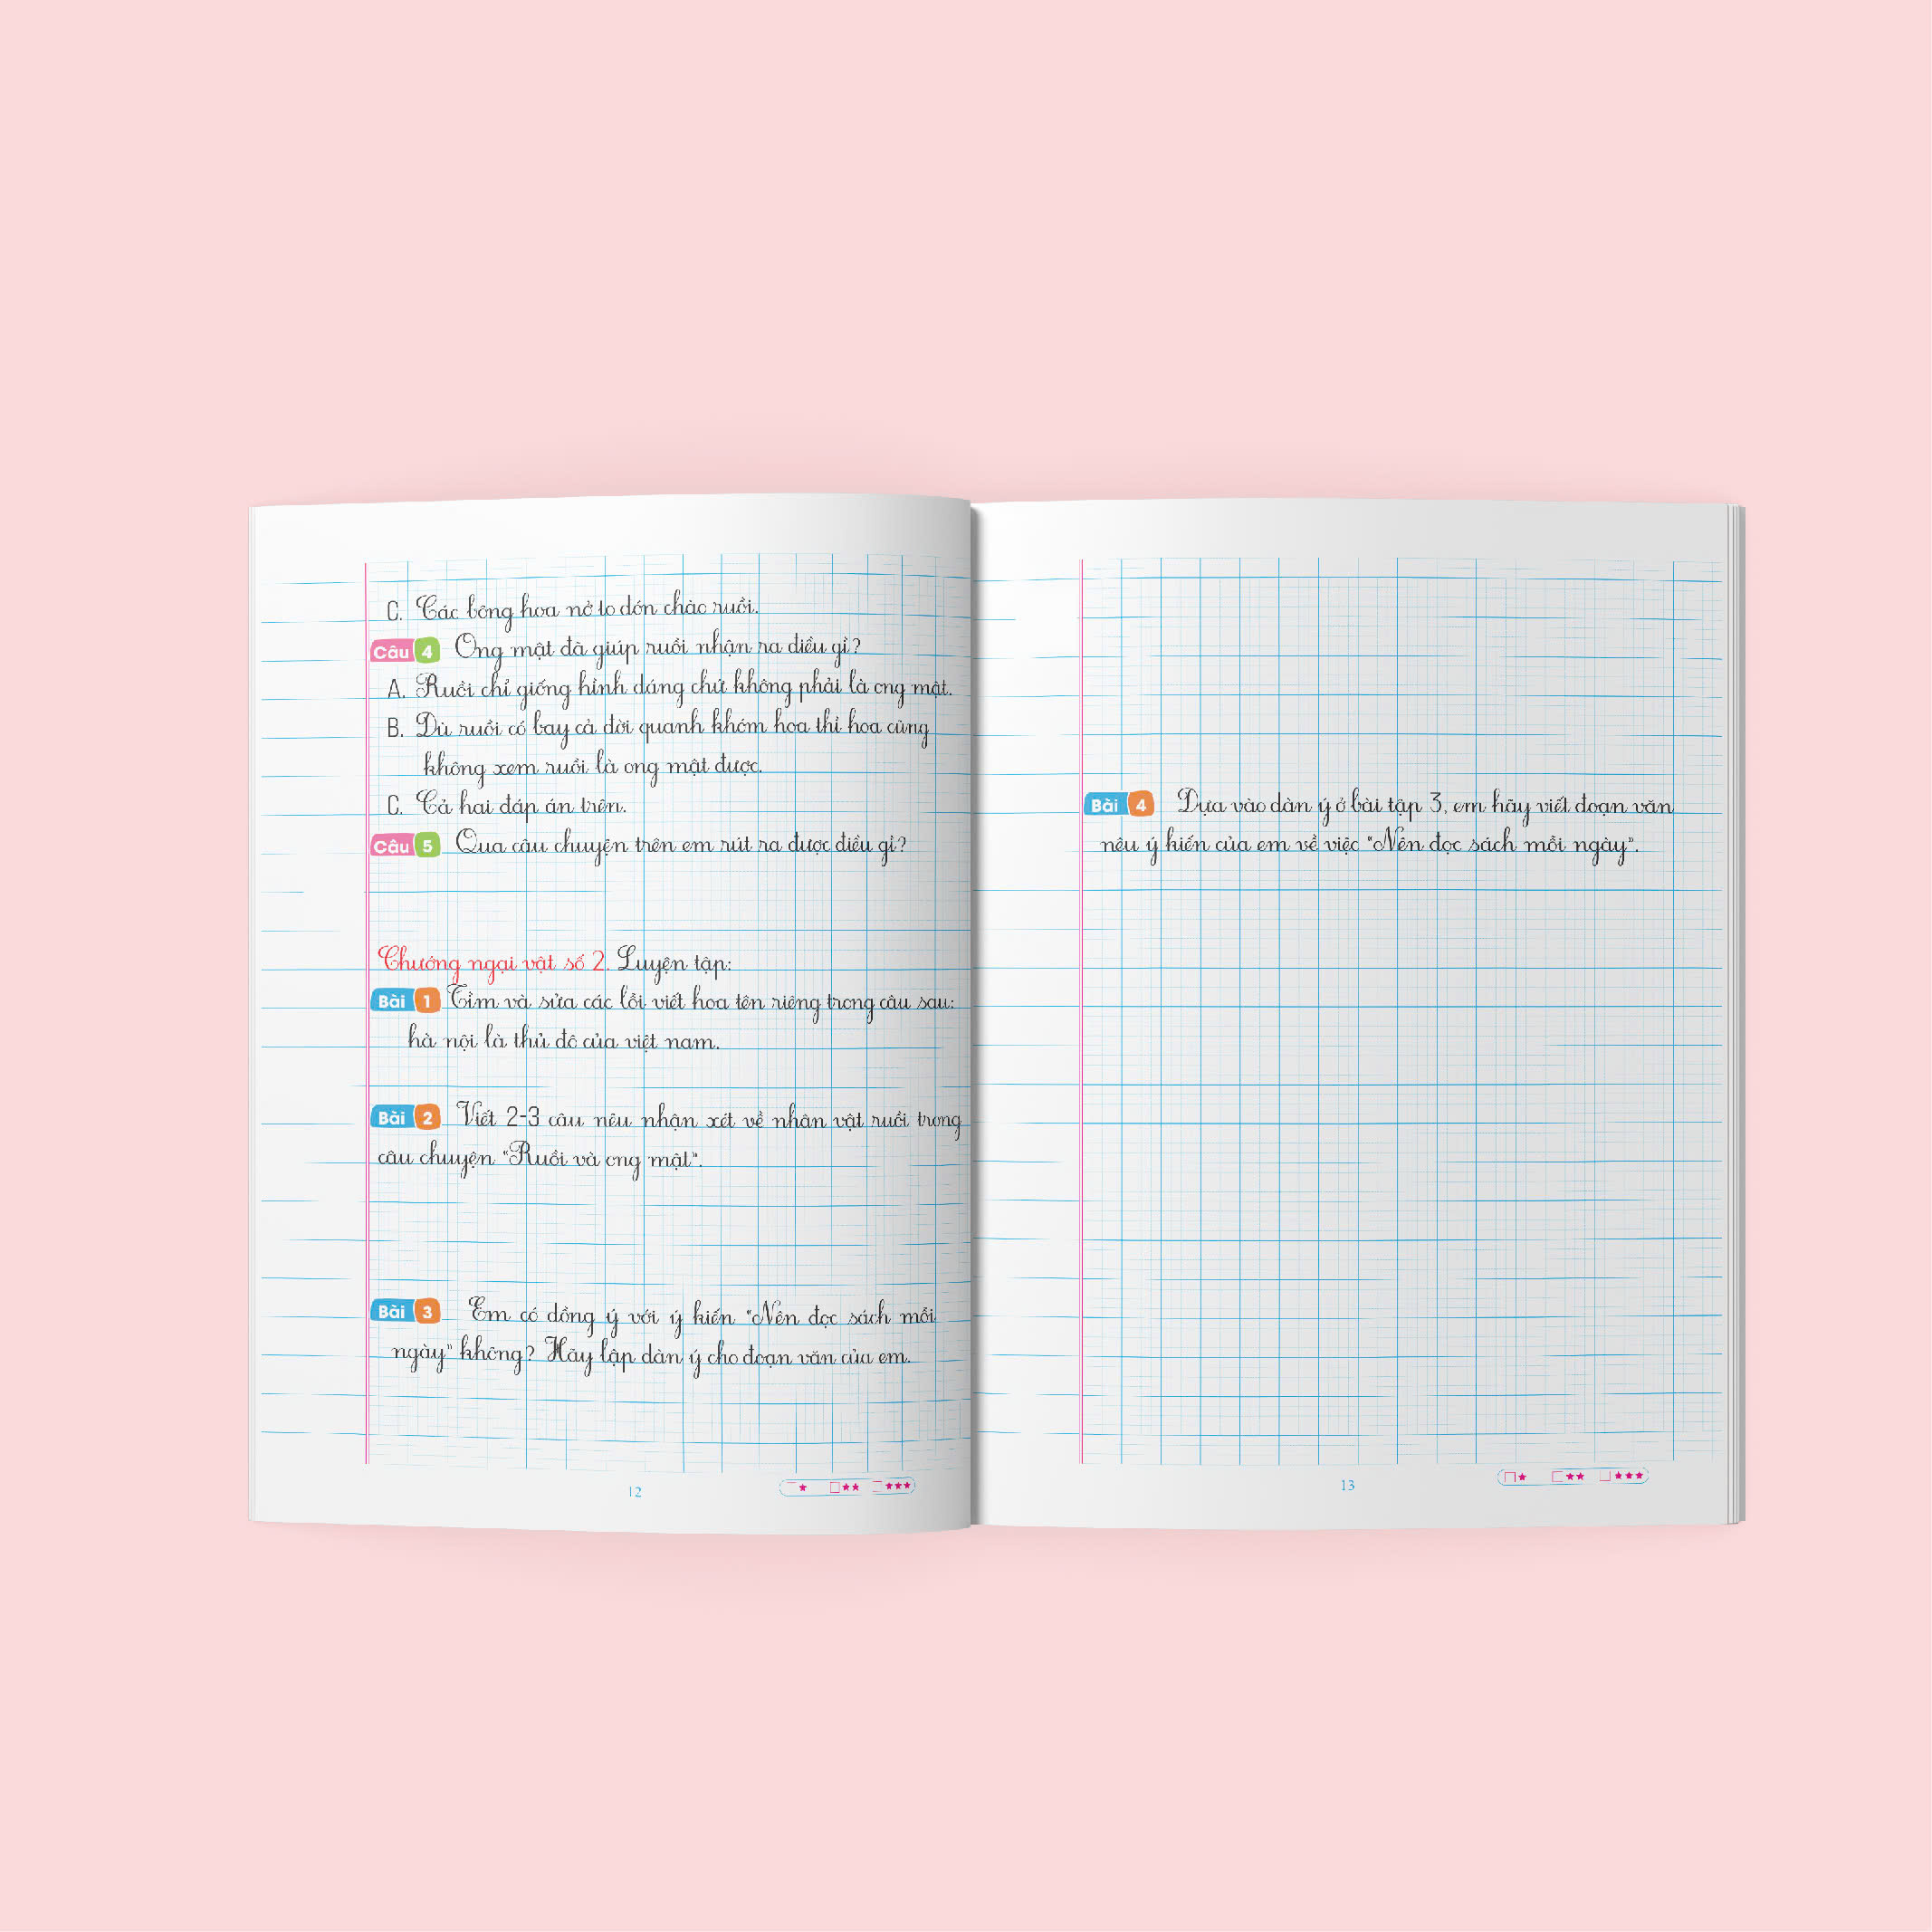 C. Các bông hoa nở to đón chào ruồi.
Câu 4 Ong mật đã giúp ruồi nhận ra điều gì?
A. Ruồi chỉ giống hình dáng chứ không phải là ong mật.
B. Dù ruồi có bay cả đời quanh khóm hoa thì hoa cũng
không xem ruồi là ong mật được.
C. Cả hai đáp án trên.
Câu 5 Qua câu chuyện trên em rút ra được điều gì?
Chướng ngại vật số 2. Luyện tập:
Bài 1 Tìm và sửa các lỗi viết hoa tên riêng trong câu sau:
hà nội là thủ đô của việt nam.
Bài 2 Viết 2-3 câu nêu nhận xét về nhân vật ruồi trong
câu chuyện "Ruồi và ong mật".
Bài 3 Em có đồng ý với ý kiến "Nên đọc sách mỗi
ngày" không? Hãy lập dàn ý cho đoạn văn của em.
12
Bài 4 Dựa vào dàn ý ở bài tập 3, em hãy viết đoạn văn
nêu ý kiến của em về việc "Nên đọc sách mỗi ngày".
13